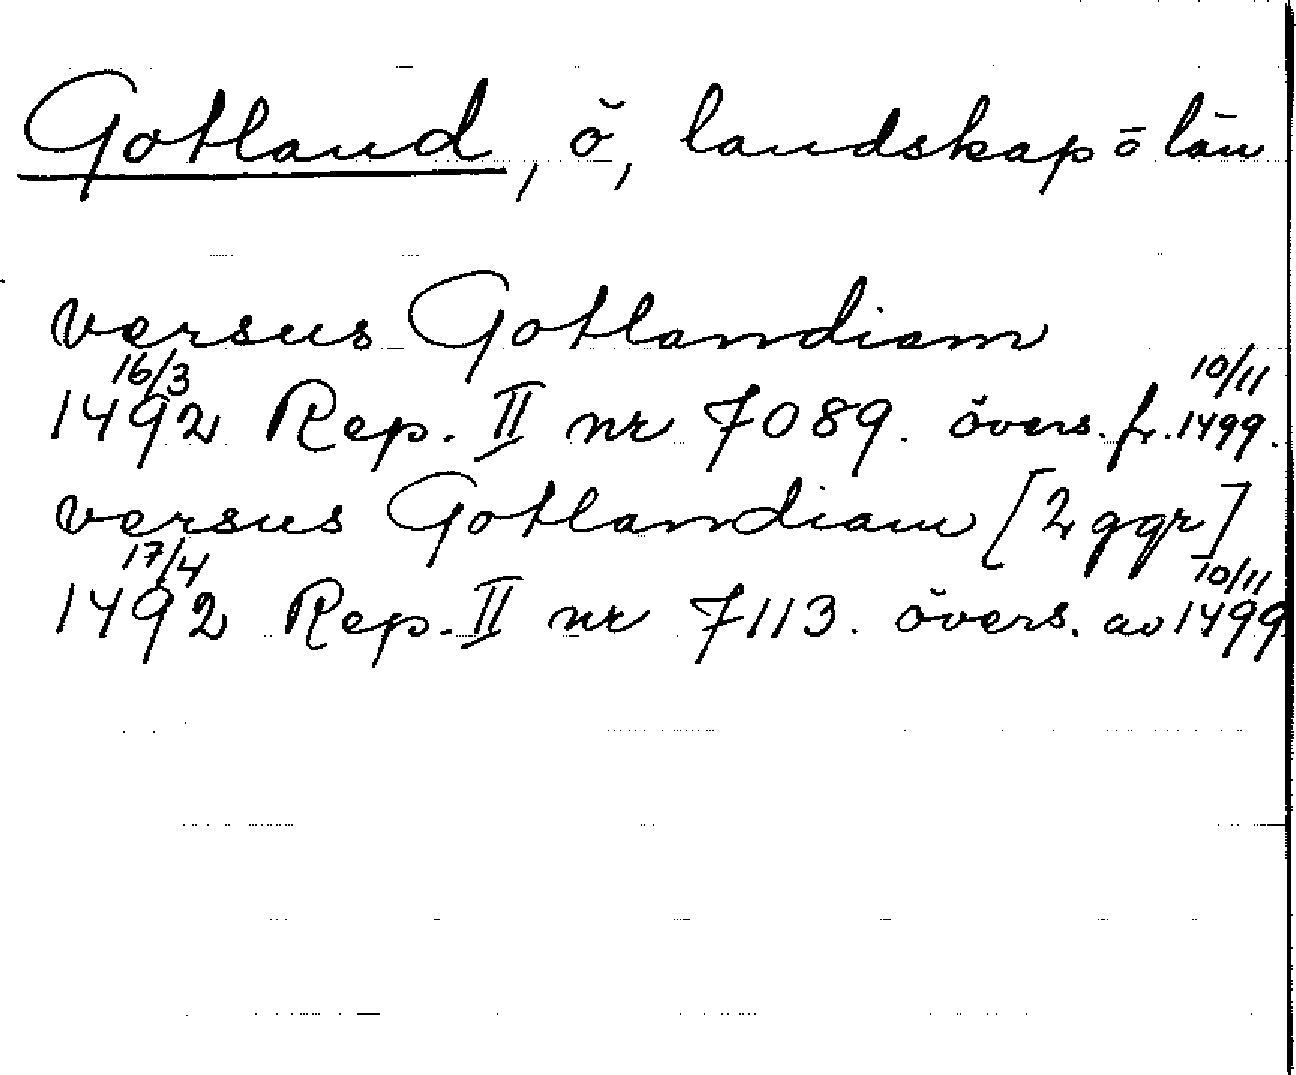 Gotland, ö, landskap o län
versus Gotlandiam
16/3 10/11
1492 Rep. II nr 7089. övers. fr. 1499.
versus Gotlandiam [2 ggr]
17/4 10/11
1492 Rep. II nr 7113. övers. av 1499